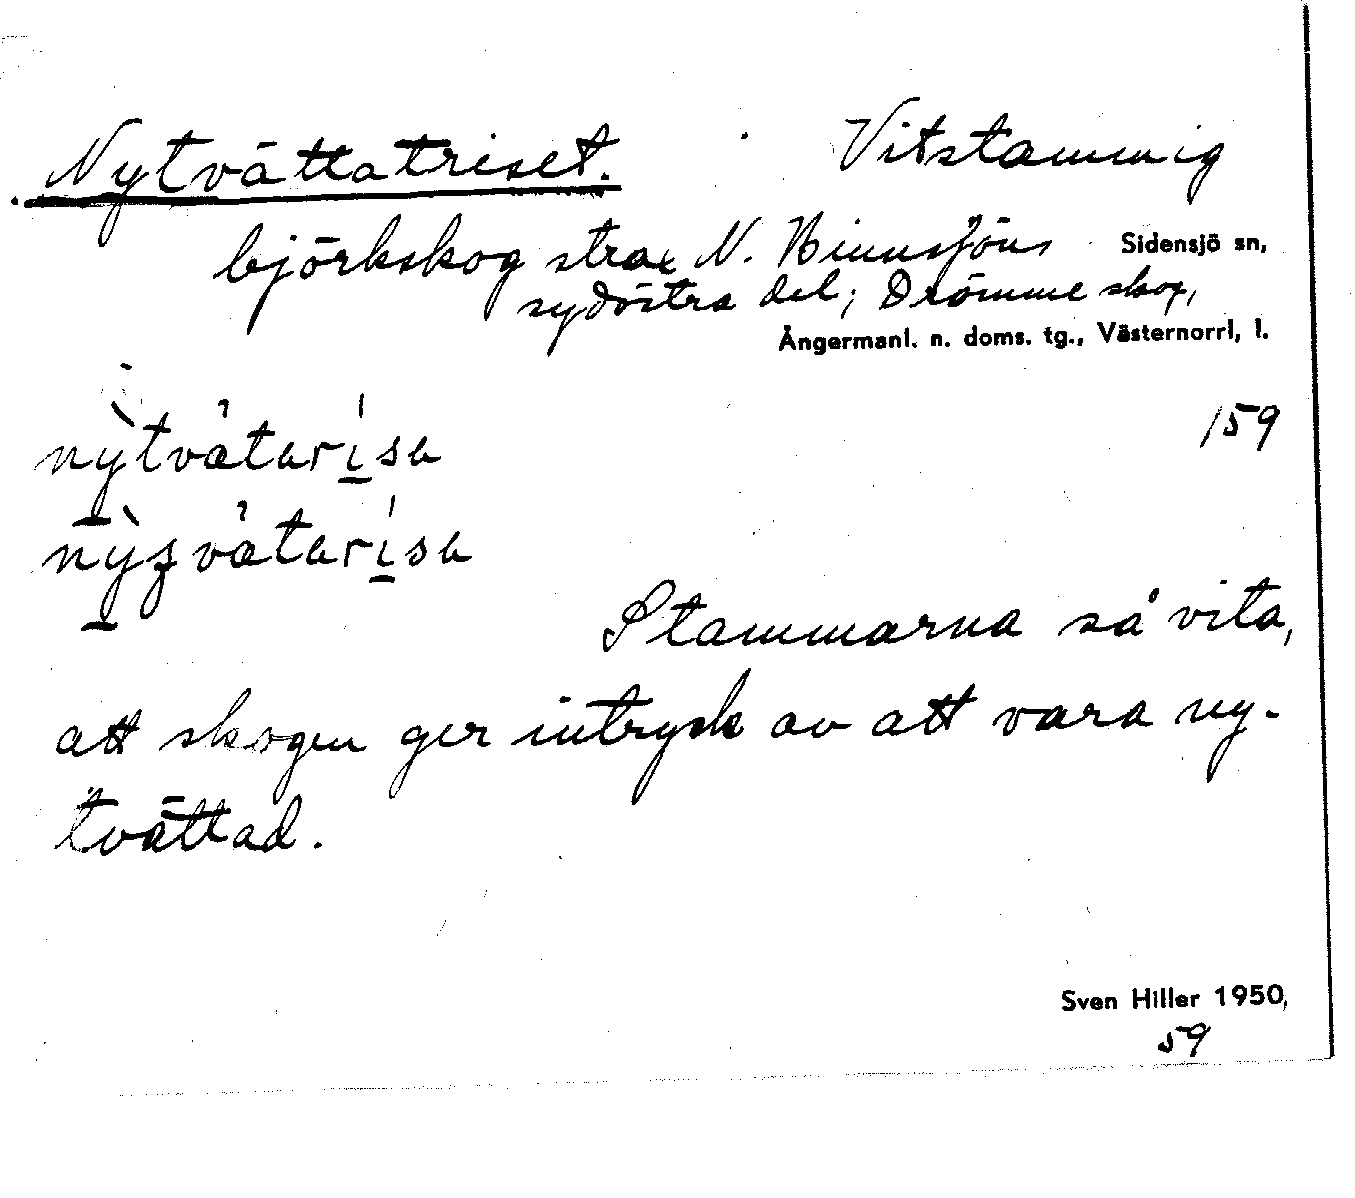 Nytvättatriset. Vitstammig
björkskog strax N. Hinnsjöns Sidensjö sn,
sydöstra del; Drömme skog,
Ångermanl. n. doms. tg., Västernorrl, l.
159
Stammarna så vita,
att skogen ger intryck av att vara ny-
tvättad.
Sven Hiller 1950,
59